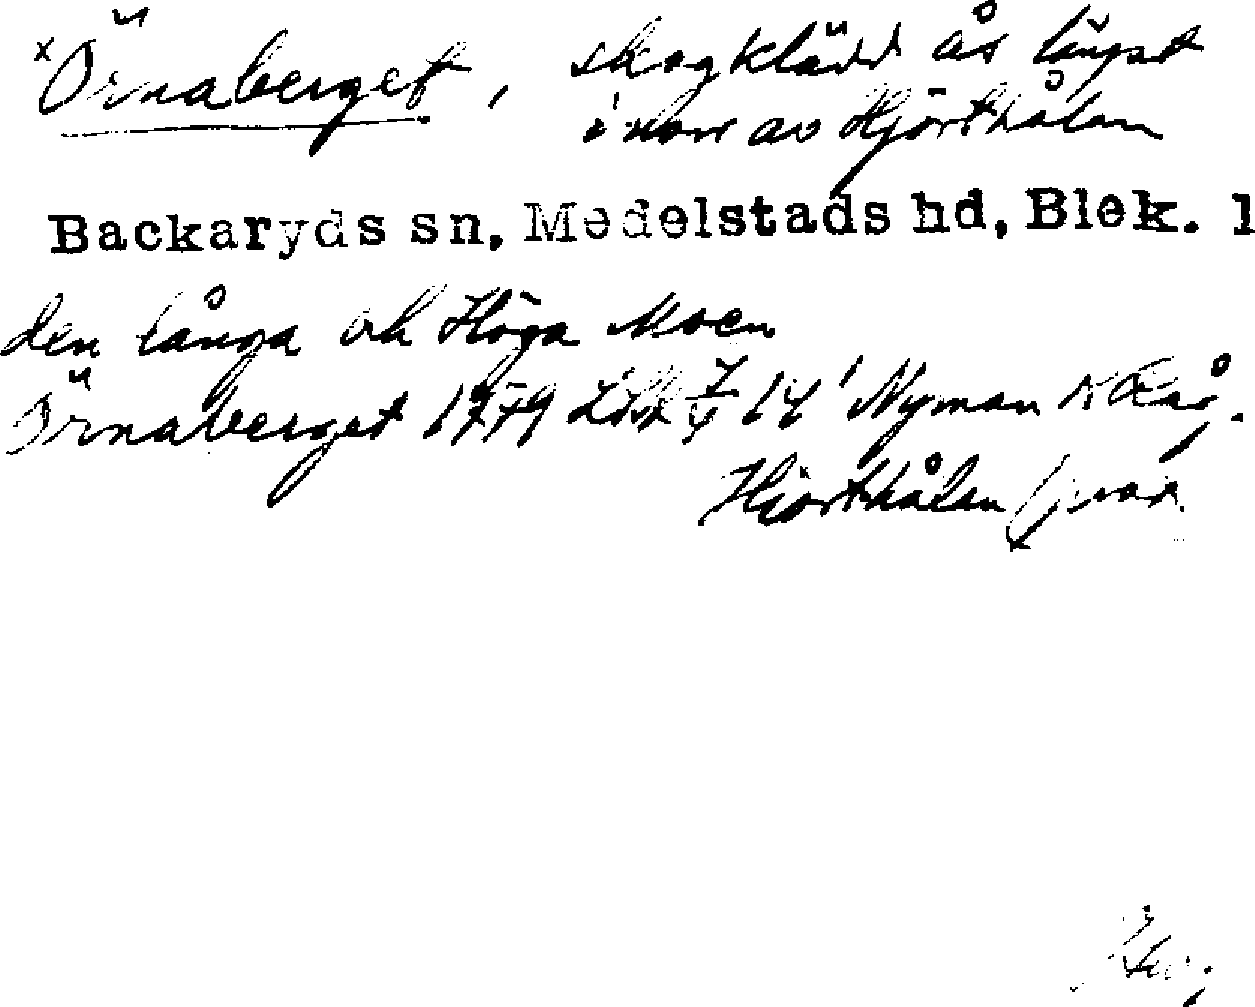 x Örnaberget, skogklädd ås längst
i norr av Hjorthålan
Backaryds sn, Medelstads hd, Blek. l
den långa och Höga Moen
Örnaberget 1779 14 Nyman
Hjorthålan